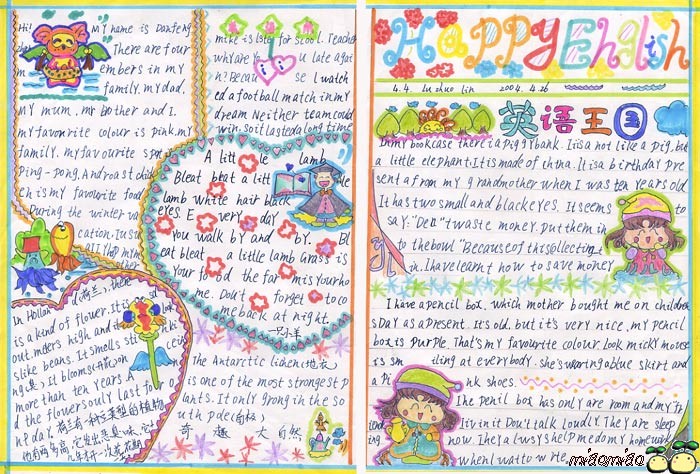 Hi! My name is Danfeng
There are four
embers in my
family. my dad,
my mum, my brother and I.
my favourite colour is pink. my
family. my favourite sport
Ping-pong. And roast chick
en is my favourite food
During the winter va
cation. I us
all my
In Hollan d (荷兰), there
is a kind of flower. It is
out. meters high and
like beans. It smells sti
ng(臭). It blooms(开花) on
more than ten years. A
d the flowers only last fo
ne day. 荷兰有一种豆
mike is later for school. Teacher
why are you late again
n? Because I watch
ed a football match in my
dream. Neither team could
win. so it lasted a long time
A little lamb
Bleat beat a litt le
lamb white hair black
eyes. Every day
you walk by and by. Bl
eat bleat a little lamb Grass is
your food the farm is your ho
me. Don't forget to co
me back at night.
一只小羊
the Antarctic lichen(地衣)
is one of the most strongest p
lants. It only grong in the so
uth pole(南极)
奇趣大自然
Happy English
4.4. Lu shuo lin 2004.4.26
英语王国
In my bookcase there is a piggy bank. It is a not like a pig, but
a little elephant. It is made of china. It is a birthday pre
sent a from my grandmother when I was ten years old
It has two small and black eyes. It seem to
say: "Don't waste money. put them in
to the bowl." Because of this collecting
in. I have learnt how to save money
I have a pencil box. which mother bought me on children
s Day as a present. It's old. but it's very nice. my pencil
box is purple. That's my favourite colour. Look micky mouse
is sm iling at every body. she's wearing a blue skirt and
a pi nk shoes.
The pencil box has only are room and my fr
iend is in it. Don't talk loudly. They are sleep
ing now. They always help me do my homework
when I want to write.
miaomiao